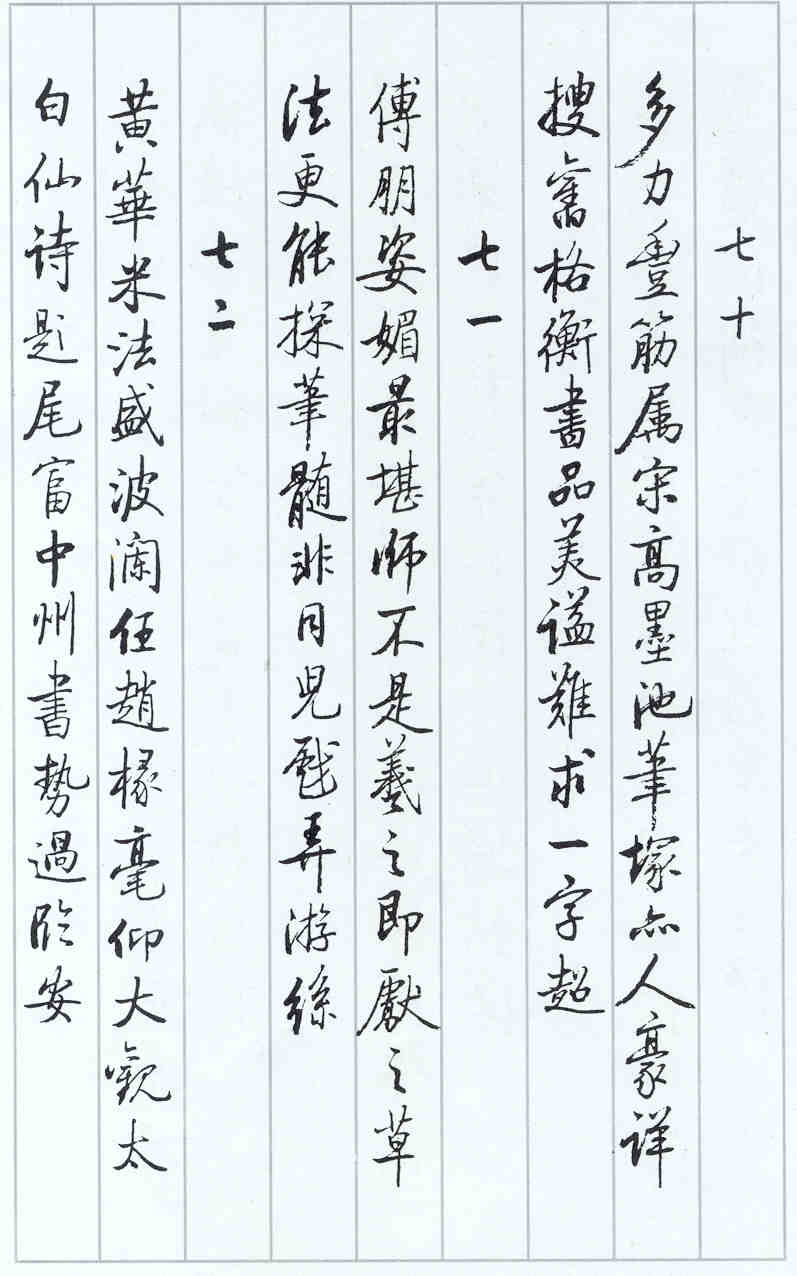 七十
多力豐筋属宋高墨池筆塚亦人豪详
搜舊格衡書品美谥難求一字超
七一
傅朋姿媚最堪师不是羲之即獻之草
法更能探筆髓非同兒戲弄游絲
七二
黄華米法盛波瀾任趙椽毫仰大觀太
白仙诗题尾富中州書势過临安